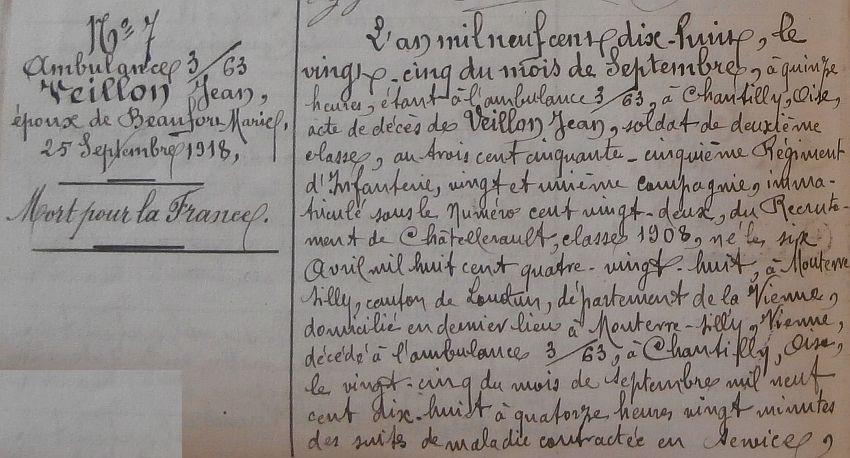 N° 7
Ambulance 3/63
Veillon Jean,
époux de Beaufort Marie,
25 Septembre 1918,
Mort pour la France.
L'an mil neuf cent dix-huit, le
vingt-cinq du mois de Septembre, à quinze
heures, étant à l'ambulance 3/63, à Chantilly, Oise,
acte de décès de Veillon Jean, soldat de deuxième
classe, au trois cent cinquante-cinquième Régiment
d'Infanterie, vingt et unième compagnie, imma-
triculé sous le Numéro cent vingt-deux, du Recrute-
ment de Châtellerault, classe 1908, né le six
Avril mil huit cent quatre-vingt-huit, à Mouterre
Silly, canton de Loudun, département de la Vienne,
domicilié en dernier lieu à Mouterre-Silly, Vienne,
décédé à l'ambulance 3/63, à Chantilly, Oise,
le vingt-cinq du mois de Septembre mil neuf
cent dix-huit à quatorze heures vingt minutes
des suites de maladie contractée en service,